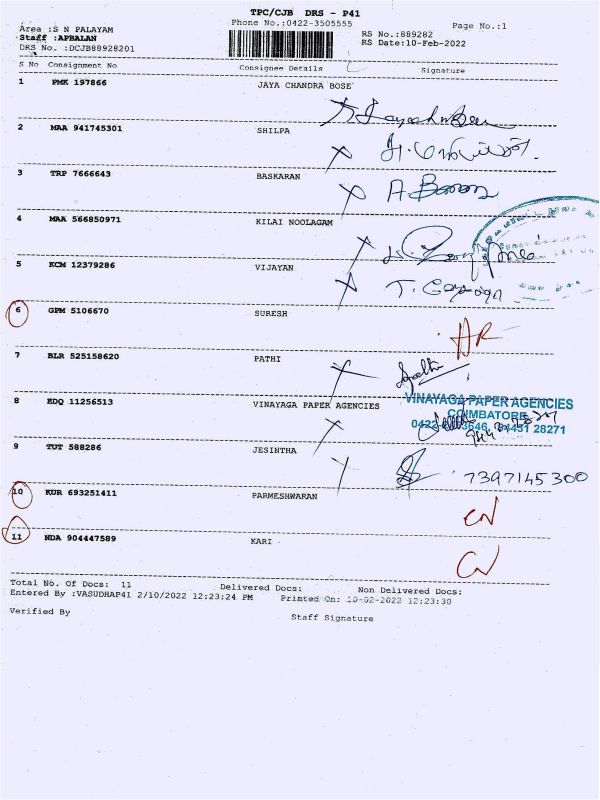 TPC/CJB DRS - P41
Phone No.:0422-3505555
Page No.:1
Area :S N PALAYAM
Staff :APBALAN
DRS No. :DCJB88928201
RS No.:889282
RS Date:10-Feb-2022
S No Consignment No Consignee Details Signature
1 PMK 197866 JAYA CHANDRA BOSE
2 MAA 941745301 SHILPA
3 TRP 7666643 BASKARAN
4 MAA 566850971 KILAI NOOLAGAM
5 KCM 12379286 VIJAYAN
6 GPM 5106670 SURESH
7 BLR 525158620 PATHI
8 EDQ 11256513 VINAYAGA PAPER AGENCIES
VINAYAGA PAPER AGENCIES
COIMBATORE
28271
9 TUT 588286 JESINTHA
7397145300
10 KUR 693251411 PARMESHWARAN
11 NDA 904447589 KARI
Total No. Of Docs: 11 Delivered Docs: Non Delivered Docs:
Entered By :VASUDHAP41 2/10/2022 12:23:24 PM Printed On: 10-02-2022 12:23:30
Verified By Staff Signature